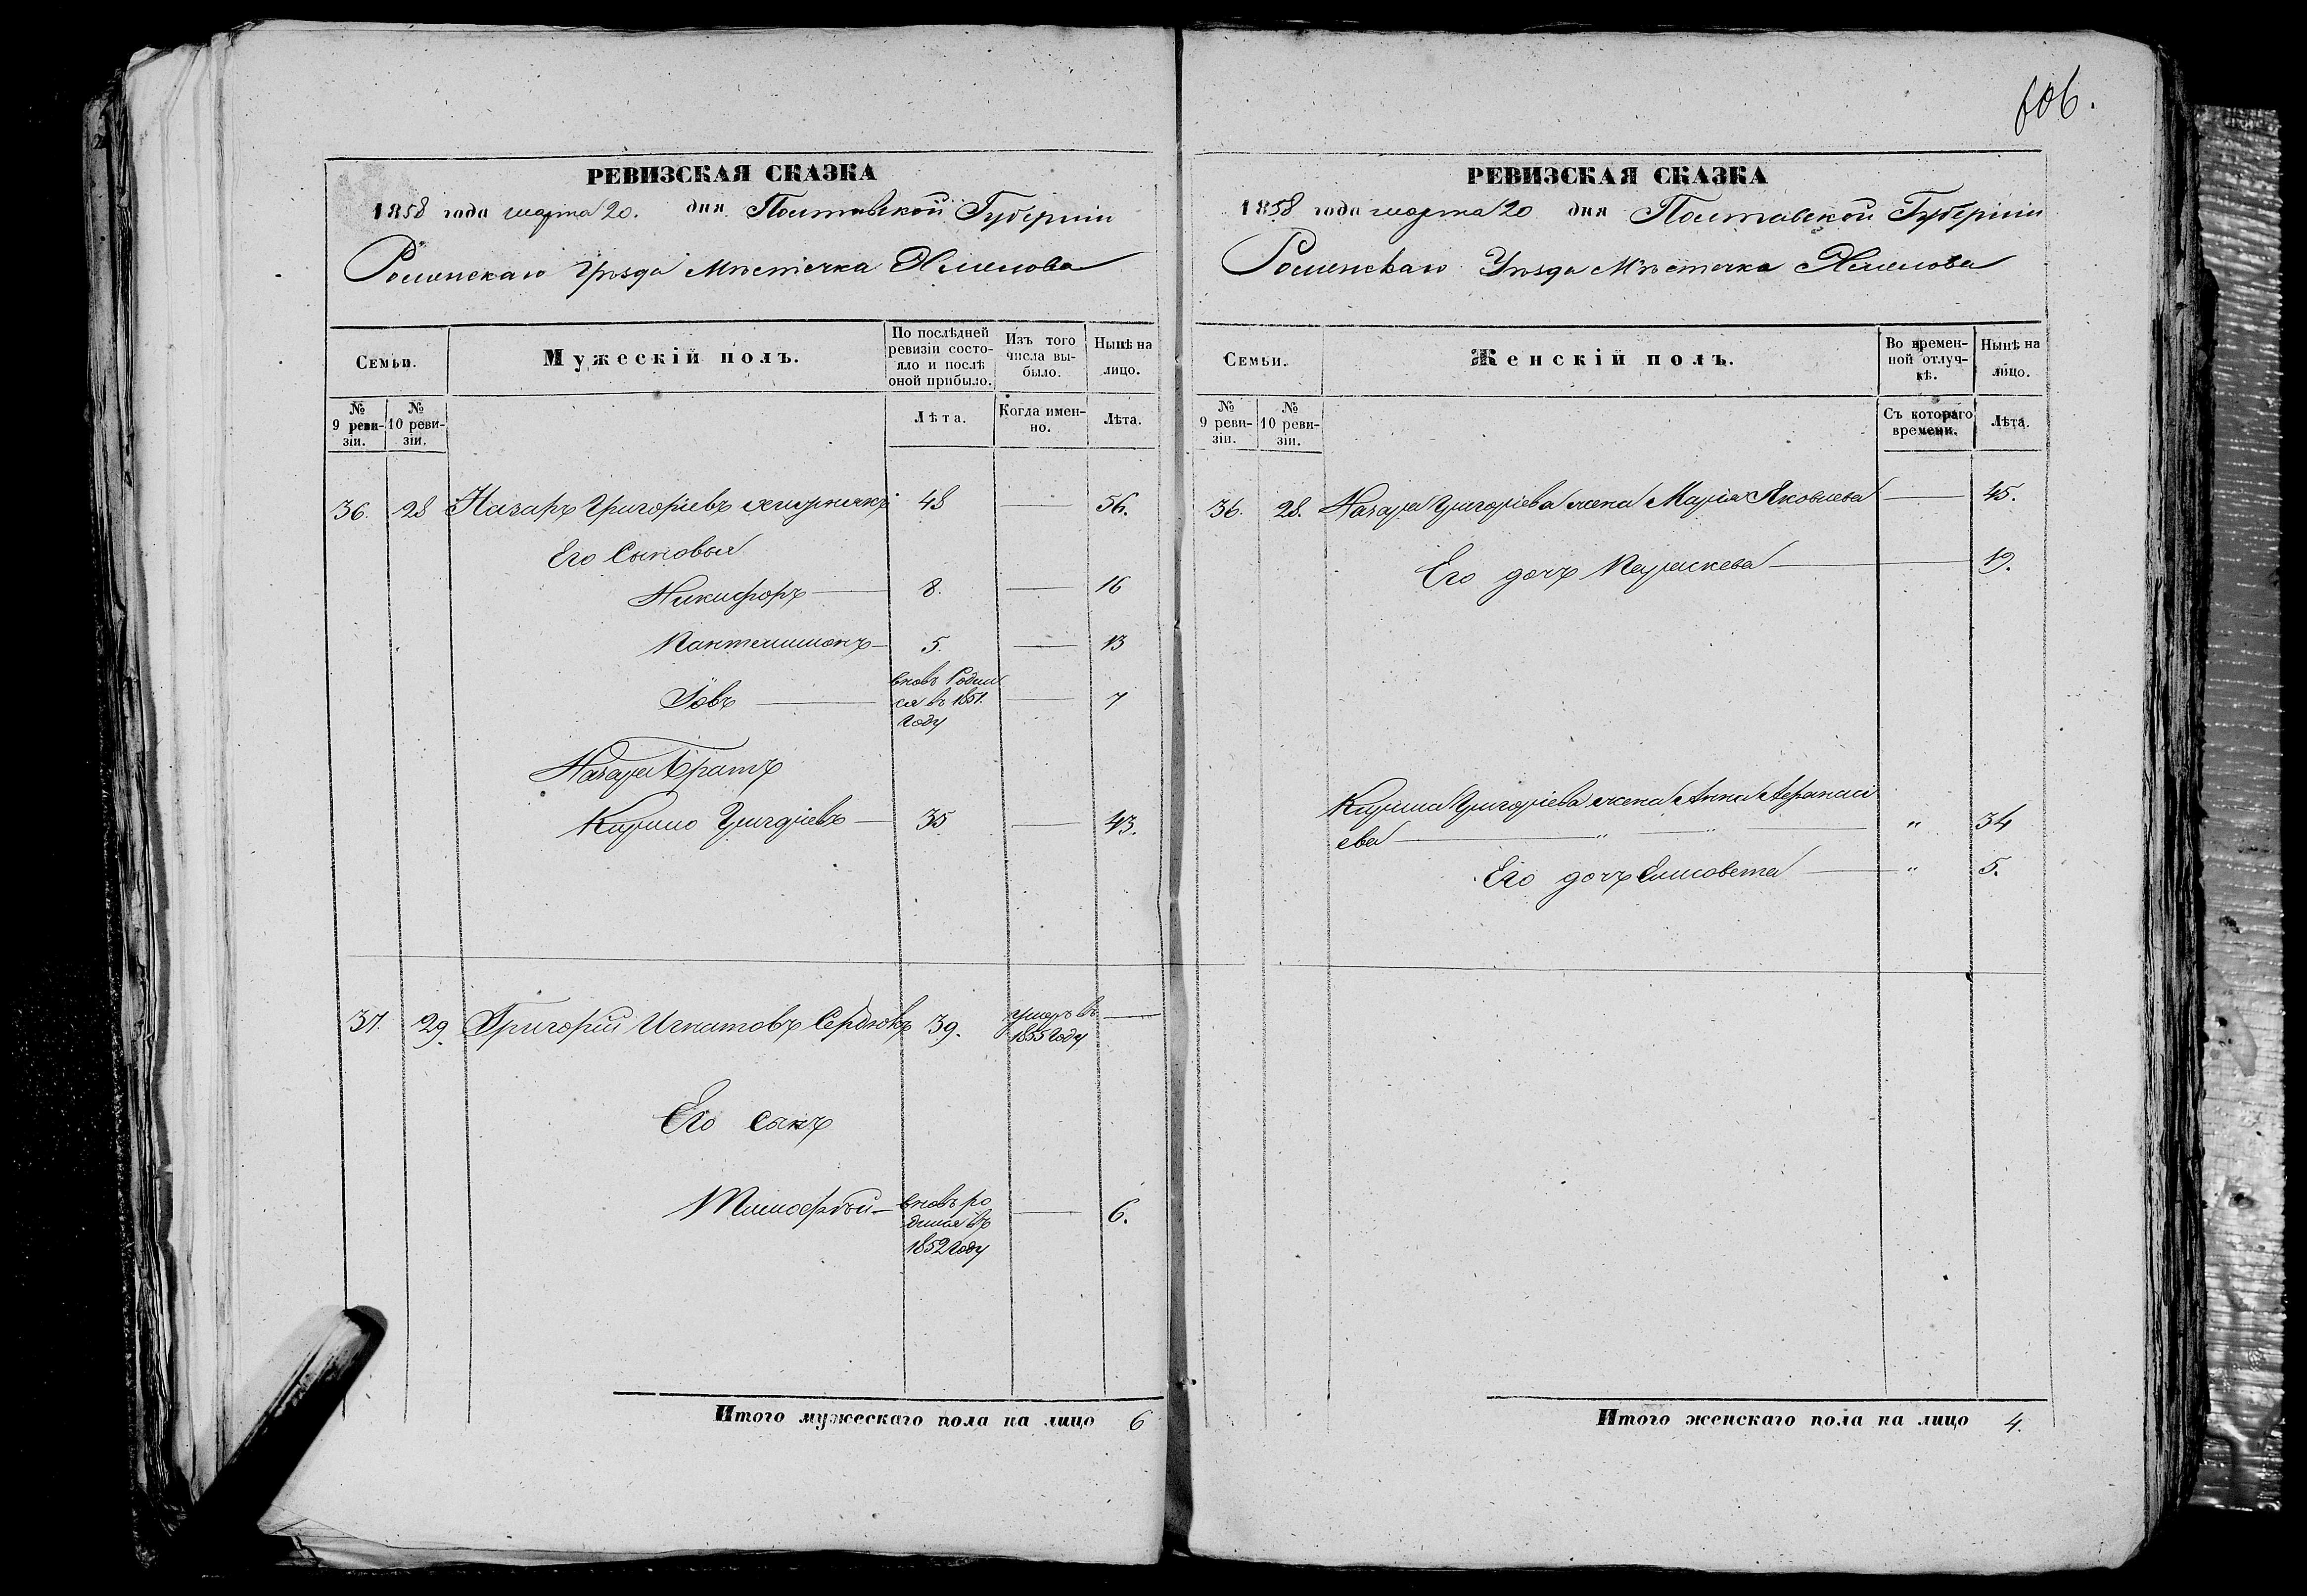 606.
РЕВИЗСКАЯ СКАЗКА
1858 года марта 20. дня Полтавской Губерніи
Роменскаго Уѣзда Мѣстечка Хмелова
Семьи.
Мужескій полъ.
По послѣдней ревизіи состояло и послѣ оной прибыло.
Изъ того числа выбыло.
Нынѣ на лицо.
№ 9 ревизіи.
№ 10 ревизіи.
Лѣта.
Когда именно.
Лѣта.
36. 28 Назаръ Григоріевъ 48 — 56.
Его Сыновья
Никифоръ — 8. — 16
Пантелимонъ — 5. — 13
Іовъ — вновь Родил
ся въ 1851.
Году — 7
Назара Братъ
Кирило Григоріевъ — 35 — 43.
37. 29. Григорій Игнатовъ Сердюкъ 39. умеръ въ
1855 Году —
Его сынъ
Тимофѣй — вновь ро
дился въ
1852 Году — 6.
Итого мужескаго пола на лицо 6
РЕВИЗСКАЯ СКАЗКА
1858 года марта 20 дня Полтавской Губерніи
Роменскаго Уѣзда Мѣстечка Хмелова
Семьи.
Женскій полъ.
Во временной отлучкѣ.
Нынѣ на лицо.
№ 9 ревизіи.
№ 10 ревизіи.
Съ котораго времени.
Лѣта.
36. 28. Назара Григоріева жена Марія Яковлева — 45.
Его дочь Параскева — 19.
Кирила Григоріева жена Анна Афанасі
ева — " — " — " 34
Его дочь Елисовета — " 5.
Итого женскаго пола на лицо 4.